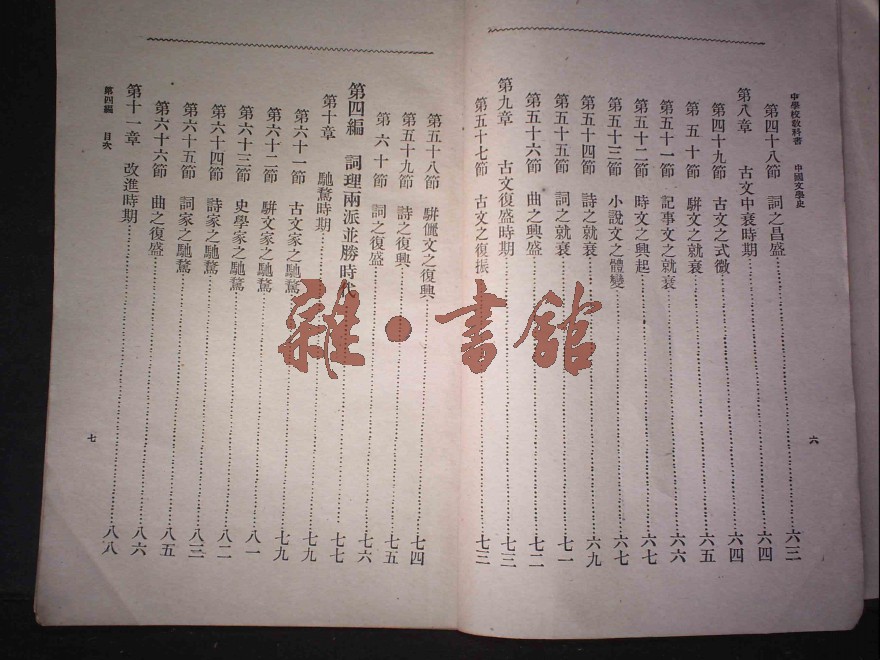 中學校教科書 中國文學史
第四十八節 詞之昌盛……六三
第八章 古文中衰時期……六四
第四十九節 古文之式微……六四
第五十節 駢文之就衰……六五
第五十一節 記事文之就衰……六六
第五十二節 時文之興起……六七
第五十三節 小說文之體變……六七
第五十四節 詩之就衰……六九
第五十五節 詞之就衰……七一
第五十六節 曲之興盛……七二
第九章 古文復盛時期……七三
第五十七節 古文之復振……七三
六
第五十八節 駢儷文之復興……七四
第五十九節 詩之復興……七五
第六十節 詞之復盛……七六
第四編 詞理兩派並勝時代……七七
第十章 馳騖時期……七九
第六十一節 古文家之馳騖……七九
第六十二節 駢文家之馳騖……八一
第六十三節 史學家之馳騖……八二
第六十四節 詩家之馳騖……八三
第六十五節 詞家之馳騖……八五
第六十六節 曲之復盛……八六
第十一章 改進時期……八八
第四編 目次
七
雜·書館